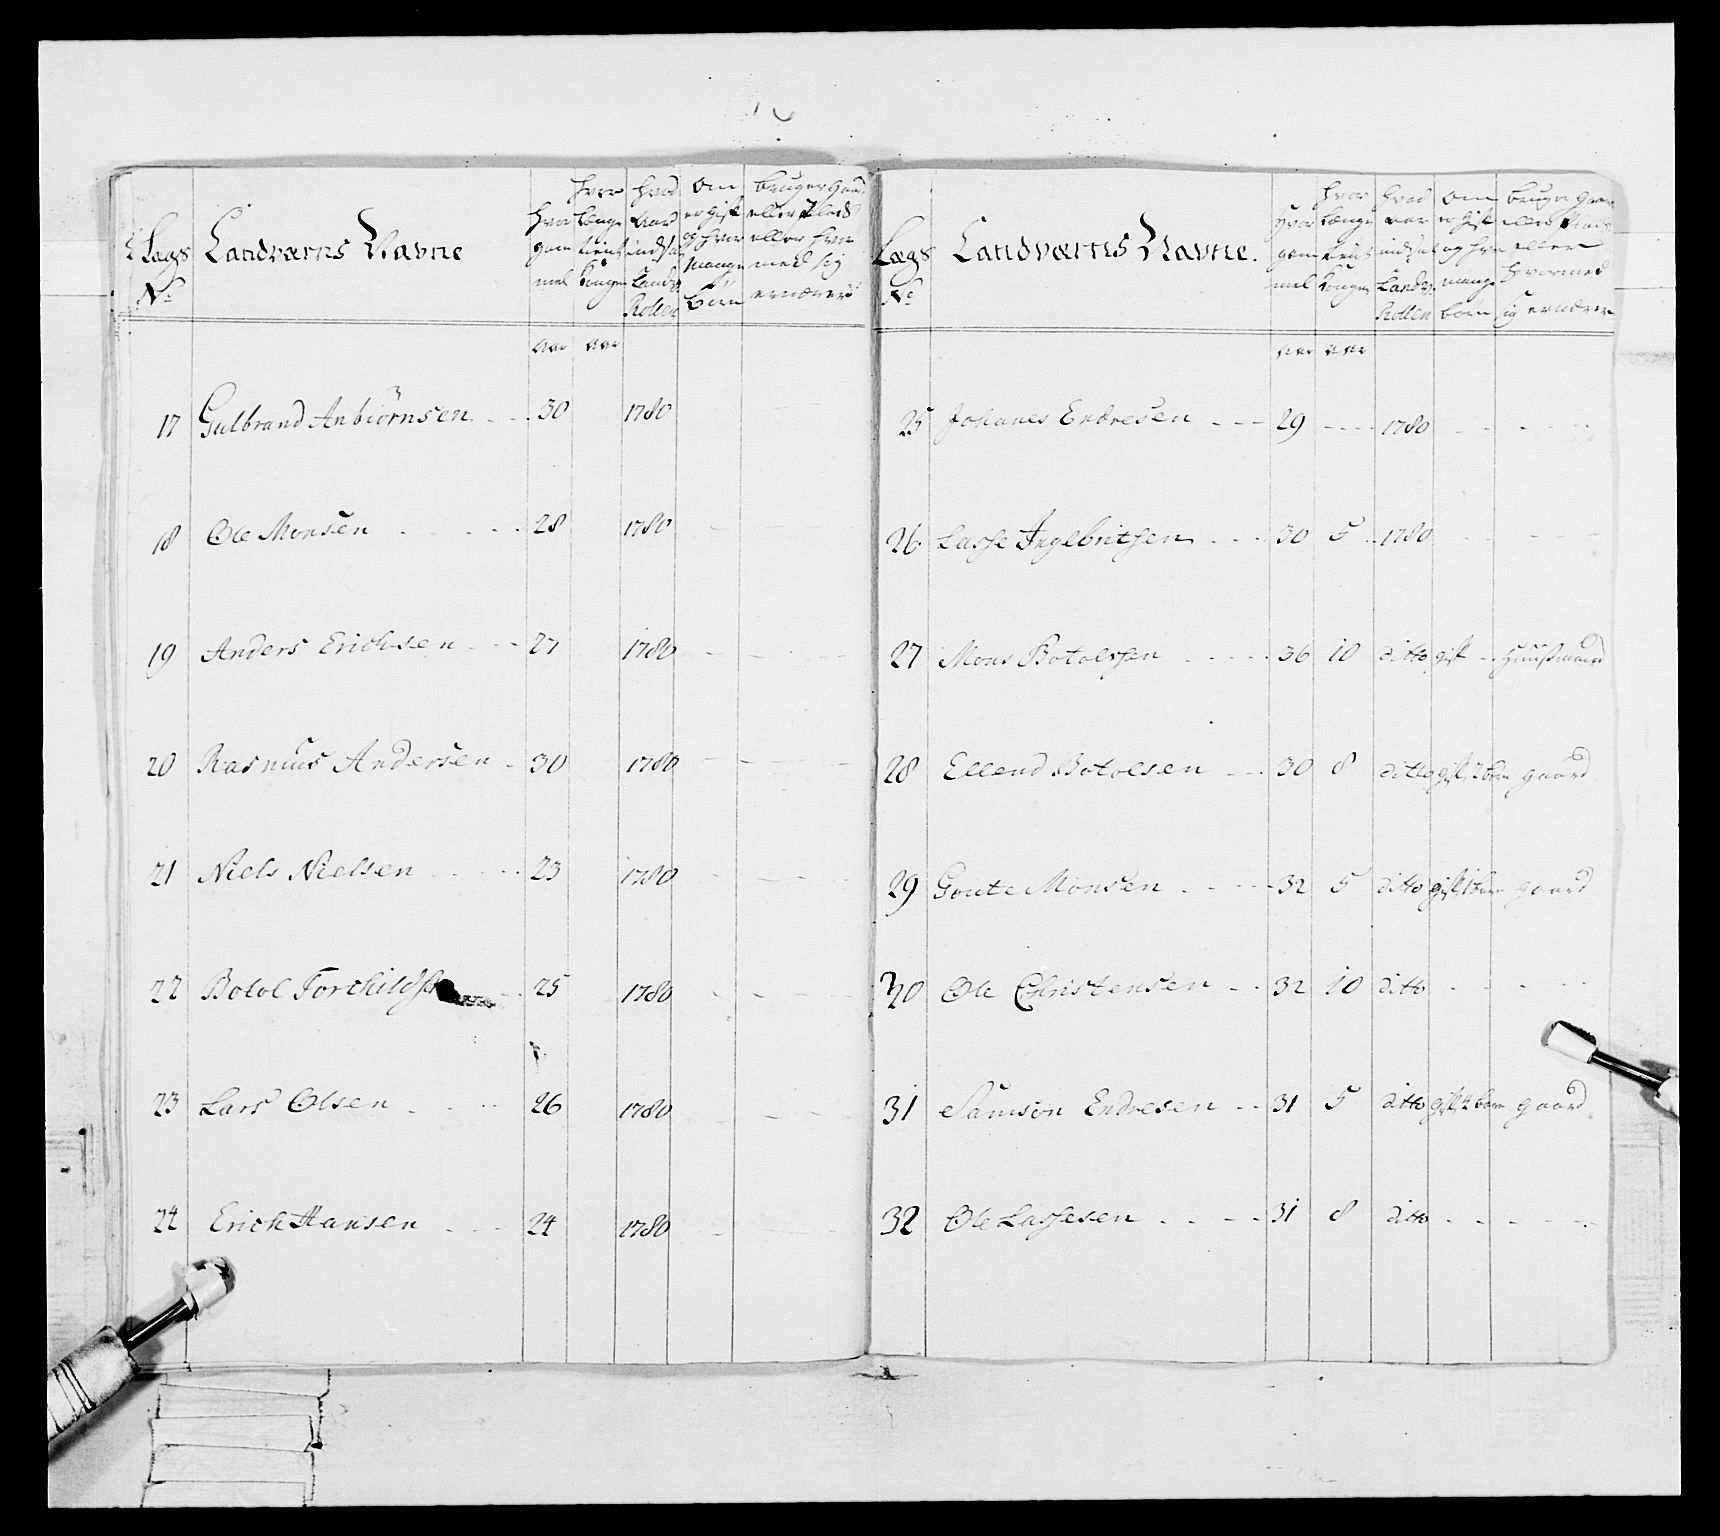 Lægs No
Landværns Navne
Hvor gammel
Hvor længe tient Kongen
Hvad Aar indsat Landv: Rollen
Om er gift og hvor mange børn
bruger gaard eller Plads eller hvormed sig ernærer
aar aar
17 Gulbrand Anbiörnsen - - . 30 1780
18 Ole Monsen . . . . 28 1780
19 Anders Erichsen - - - 27 1780
20 Rasmus Andersen . 30 1780
21 Niels Nielsen - - - - 23 1780
22 Botol Torchilds 25 1780
23 Lars Olsen . . . . 26 1780
24 Erich Hansen . . . 24 1780
Lægs No
Landværns Navne.
Hvor gammel
hvor længe tient Kongen
hvad aar indsat Landv: Rollen
om er gift og hvor mange børn
bruger gaar eller Plads eller hvormed sig ernærer
aar aar
25 Johanes Endresen - - - 29 - - - - 1780
26 Lasse Ingebritsen . . . 30 5 . . 1780
27 Mons Botolsen . . . . 36 10 ditto gift - . Huusmand
28 Ellend Botolsen . . . 30 8 ditto gift, 2 børn gaard
29 Goute Monsen . . . . 32 5 ditto gift, 1 barn gaard
30 Ole Christensen - - 32 10 ditto
31 Samson Endresen . . 31 5 ditto gift, 2 børn gaard.
32 Ole Lassesen . . . . 31 8 ditto